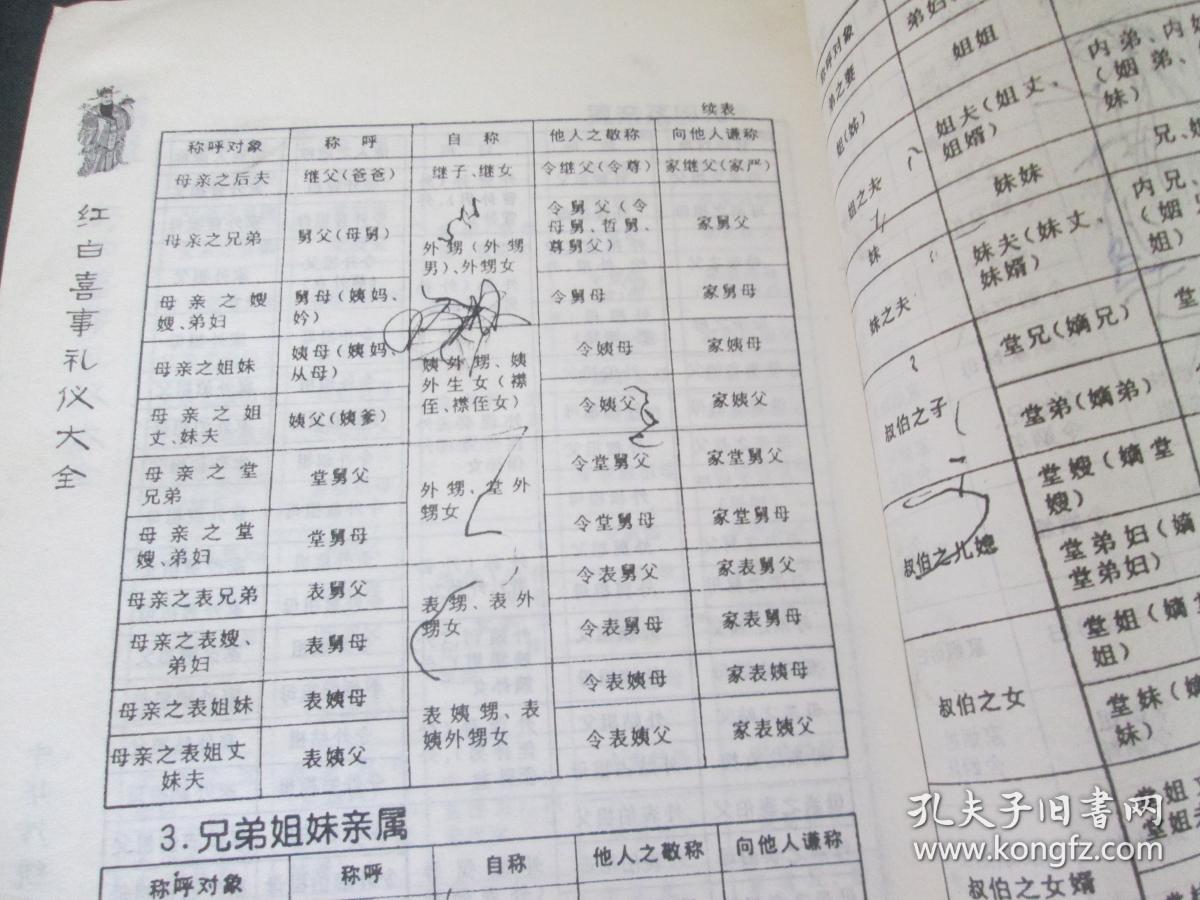 红白喜事礼仪大全
续表
称呼对象 称呼 自称 他人之敬称 向他人谦称
母亲之后夫 继父(爸爸) 继子、继女 令继父(令尊) 家继父(家严)
母亲之兄弟 舅父(母舅) 外甥(外甥
男)、外甥女 令舅父(令
母舅、哲舅、
尊舅父) 家舅父
母亲之嫂
嫂、弟妇 舅母(姨妈、
妗) 令舅母 家舅母
母亲之姐妹 姨母(姨妈、
从母) 姨外甥、姨
外生女(襟
侄、襟侄女) 令姨母 家姨母
母亲之姐
丈、妹夫 姨父(姨爹) 令姨父 家姨父
母亲之堂
兄弟 堂舅父 外甥、堂外
甥女 令堂舅父 家堂舅父
母亲之堂
嫂、弟妇 堂舅母 令堂舅母 家堂舅母
母亲之表兄弟 表舅父 表甥、表外
甥女 令表舅父 家表舅父
母亲之表嫂、
弟妇 表舅母 令表舅母 家表舅母
母亲之表姐妹 表姨母 表姨甥、表
姨外甥女 令表姨母 家表姨母
母亲之表姐丈
妹夫 表姨父 令表姨父 家表姨父
3.兄弟姐妹亲属
称呼对象 称呼 自称 他人之敬称 向他人谦称
称呼对象
弟之妻 弟妇
姐(姊) 姐姐
姐之夫 姐夫(姐丈、
姐婿) 内弟、内
(姻弟、
妹)
妹 妹妹 兄、
妹之夫 妹夫(妹丈、
妹婿) 内兄、
(姻
姐)
叔伯之子 堂兄(嫡兄) 堂
堂弟(嫡弟)
叔伯之儿媳 堂嫂(嫡堂
嫂)
堂弟妇(嫡
堂弟妇)
叔伯之女 堂姐(嫡
姐)
堂妹(嫡
妹)
叔伯之女婿 堂姐
堂姐夫
孔夫子旧书网
www.kongfz.com